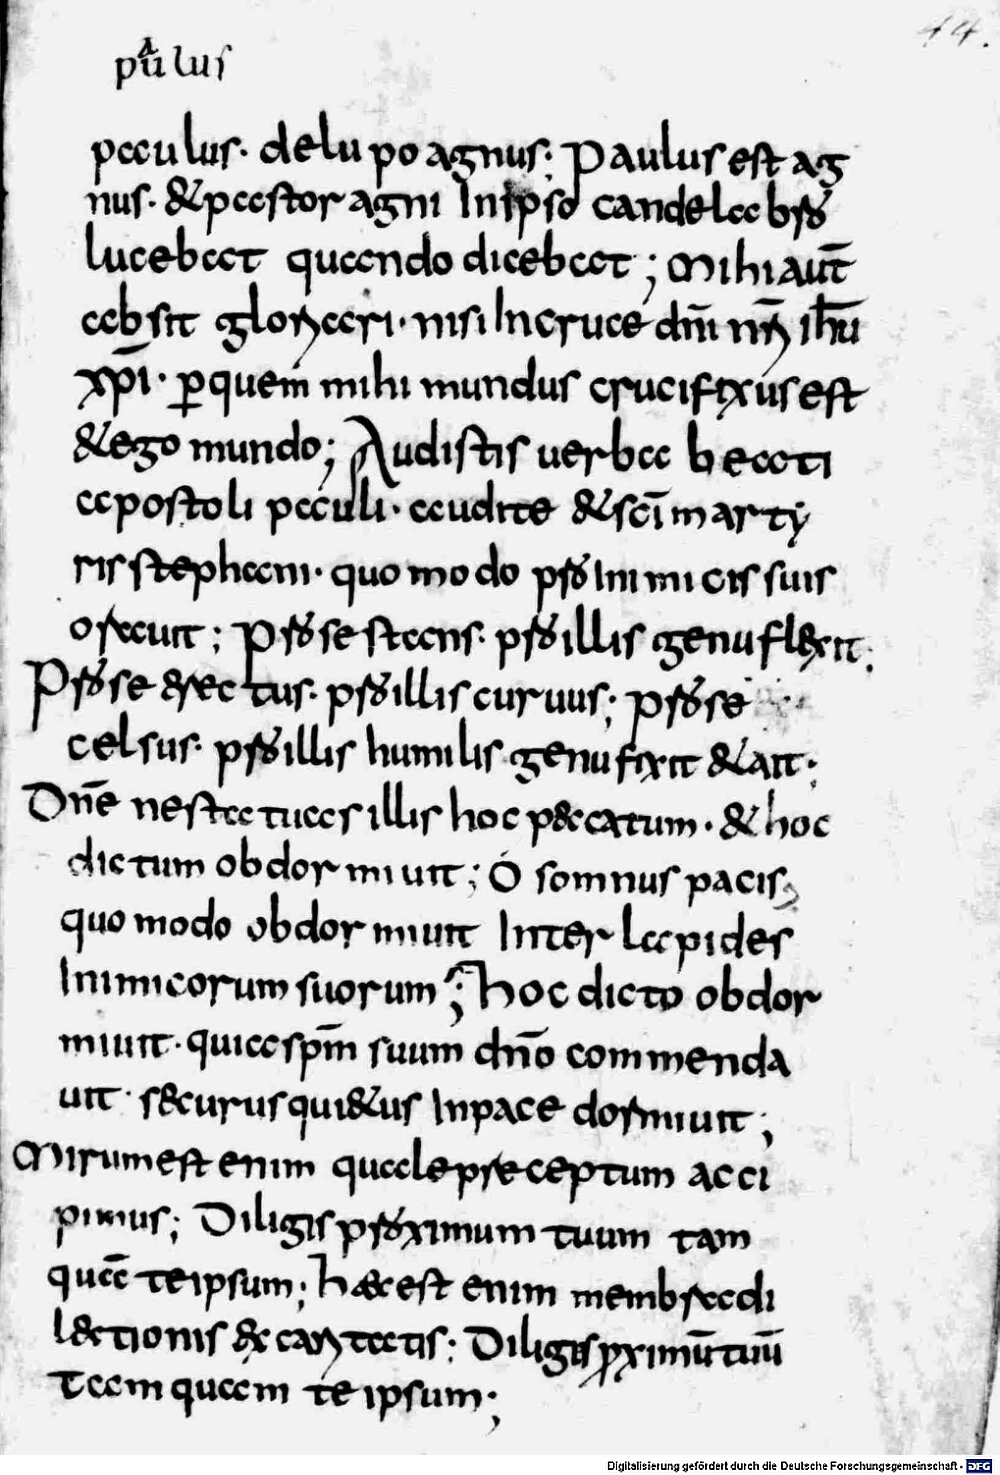 44.
paulus
paulus. delupo agnus; Paulus est ag
nus. & pastor agni Inipso candelabro
lucebat quando dicebat; Mihi aut̄
absit gloriari. nisi Incruce dn̄i nr̄i ih̄u
xp̄i. ꝑquem mihi mundus crucifixus est
& ego mundo; Audistis uerba beati
apostoli pauli. audite & sc̄i marty
ris stephani. quomodo pro Inimicis suis
orauit; Prose stans. pro illis genu flexit;
Prose erectus. pro illis curuus; prose
celsus. pro illis humilis genu fixit & ait;
Dn̄e nestatuas illis hoc peccatum. & hoc
dictum obdormiuit; O somnus pacis;
quomodo obdormiuit Inter lapides
Inimicorum suorum; Hoc dicto obdor
miuit. quia sp̄m suum dn̄o commenda
uit. securus qui&us Inpace dormiuit;
Mirum est enim quale praeceptum acci
pimus; Diligis proximum tuum tam
quā te ipsum; Haec est enim membra di
lectionis & caritatis; Diligis proximū tuū
Tam quam te ipsum;
Digitalisierung gefördert durch die Deutsche Forschungsgemeinschaft - DFG